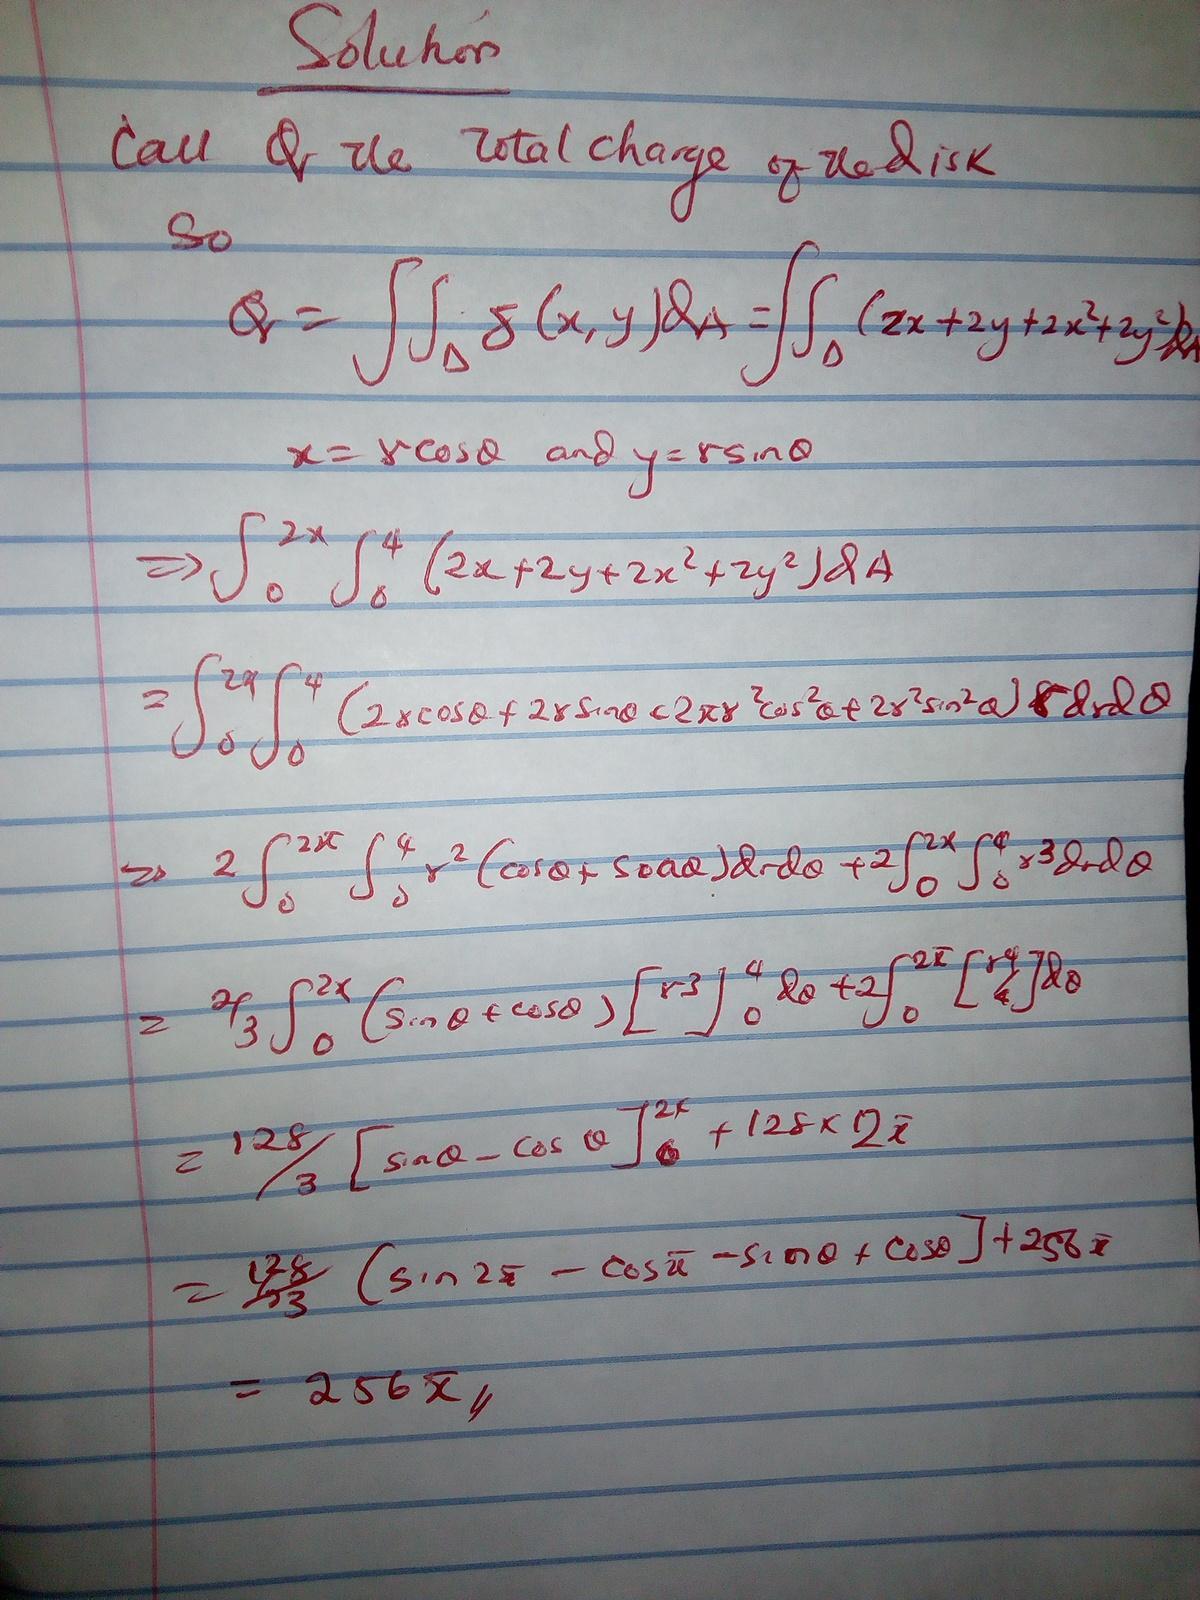 Solution
Call Q the total charge of the Disk
So
Q = ∫∫_D δ(x,y)dA = ∫∫_D (2x+2y+2x²+2y²)dA
x = rcosθ and y = rsinθ
⇒ ∫₀^2π ∫₀^4 (2x+2y+2x²+2y²)dA
= ∫₀^2π ∫₀^4 (2rcosθ + 2rsinθ + 2r²cos²θ + 2r²sin²θ) r dr dθ
⇒ 2∫₀^2π ∫₀^4 r²(cosθ + sinθ)dr dθ + 2∫₀^2π ∫₀^4 r³ dr dθ
= 2/3 ∫₀^2π (sinθ + cosθ) [r³]₀^4 dθ + 2∫₀^2π [r⁴/4]dθ
= 128/3 [sinθ - cosθ]₀^2π + 128 × 2π
= 128/3 (sin2π - cosπ - sinθ + cosθ] + 256π
= 256π